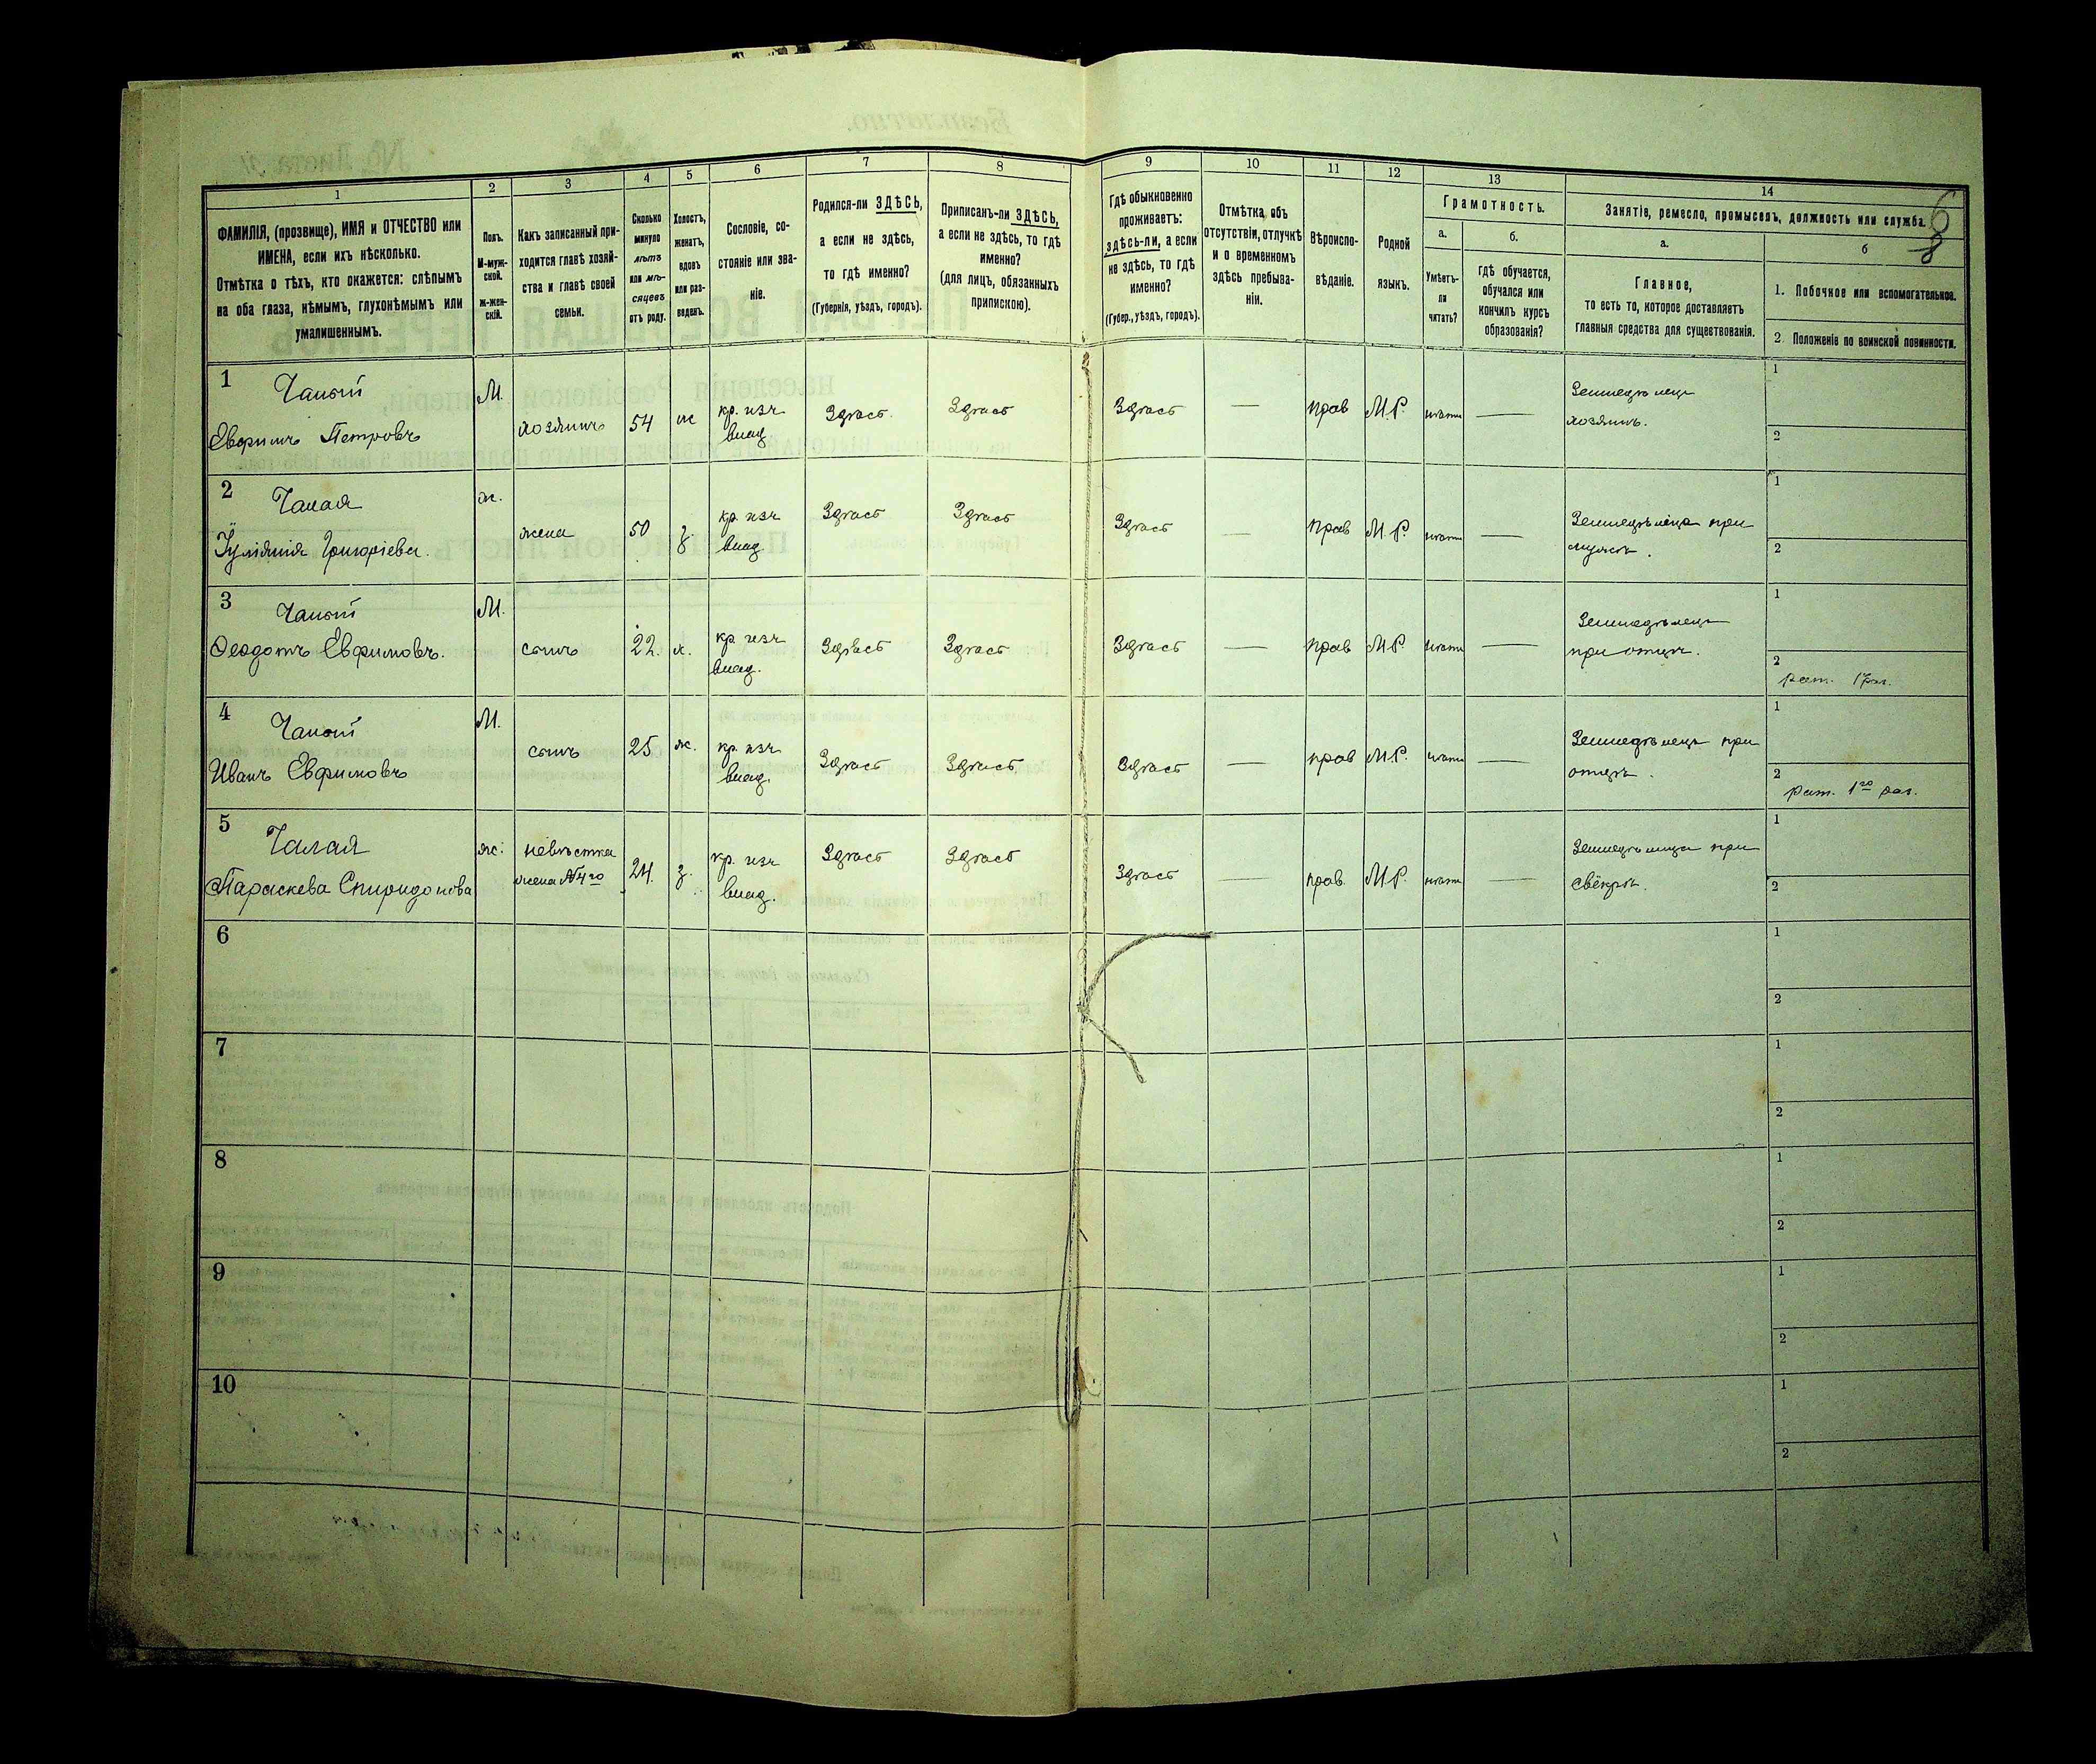 1
2
3
4
5
6
7
8
9
10
11
12
13
14
ФАМИЛІЯ, (прозвище), ИМЯ и ОТЧЕСТВО или
ИМЕНА, если ихъ нѣсколько.
Отмѣтка о тѣхъ, кто окажется: слѣпымъ
на оба глаза, нѣмымъ, глухонѣмымъ или
умалишеннымъ.
Полъ.
М-муж-
ской.
ж-жен-
скій.
Какъ записанный при-
ходится главѣ хозяй-
ства и главѣ своей
семьи.
Сколько
минуло
лѣтъ
или мѣ-
сяцевъ
отъ роду.
Холостъ,
женатъ,
вдовъ
или раз-
веденъ.
Сословіе, со-
стояніе или зва-
ніе.
Родился-ли ЗДѢСЬ,
а если не здѣсь,
то гдѣ именно?
(Губернія, уѣздъ, городъ).
Приписанъ-ли ЗДѢСЬ,
а если не здѣсь, то гдѣ
именно?
(для лицъ, обязанныхъ
припискою).
Гдѣ обыкновенно
проживаетъ:
здѣсь-ли, а если
не здѣсь, то гдѣ
именно?
(Губер., уѣздъ, городъ).
Отмѣтка объ
отсутствіи, отлучкѣ
и о временномъ
здѣсь пребыва-
ніи.
Вѣроиспо-
вѣданіе.
Родной
языкъ.
Грамотность.
а.
Умѣетъ-
ли
читать?
б.
Гдѣ обучается,
обучался или
кончилъ курсъ
образованія?
Занятіе, ремесло, промыселъ, должность или служба.
6
8
а.
Главное,
то есть то, которое доставляетъ
главныя средства для существованія.
б
1. Побочное или вспомогательное.
2. Положеніе по воинской повинности.
1
Чалый
Евфимъ Петровъ
М.
хозяинъ
54
ж
кр. изъ
влад
Здѣсь
Здѣсь
Здѣсь
—
прав
М.Р.
нѣтъ
—
Земледѣлецъ
хозяинъ.
1
2
2
Чалая
Іуліянія Григоріева.
ж.
жена
50
з.
кр. изъ
влад
Здѣсь
Здѣсь
Здѣсь
—
прав
М.Р.
нѣтъ
—
Земледѣлица при
мужѣ.
1
2
3
Чалый
Феодотъ Евфимовъ.
М.
сынъ
22.
х.
кр изъ
влад.
Здѣсь
Здѣсь
Здѣсь
—
прав
М.Р.
нѣтъ
—
Земледѣлецъ
при отцѣ.
1
2
рат. 1 раз.
4
Чалый
Иванъ Евфимовъ
М.
сынъ
25
ж.
кр. изъ
влад.
Здѣсь
Здѣсь
Здѣсь
—
прав
М.Р.
нѣтъ
—
Земледѣлецъ при
отцѣ.
1
2
рат. 1го раз.
5
Чалая
Параскева Спиридонова
ж.
невѣстка
жена №4го
24.
з.
кр. изъ
влад.
Здѣсь
Здѣсь
Здѣсь
—
прав.
М.Р.
нѣтъ
—
Земледѣлица при
свёкрѣ.
1
2
6
1
2
7
1
2
8
1
2
9
1
2
10
1
2